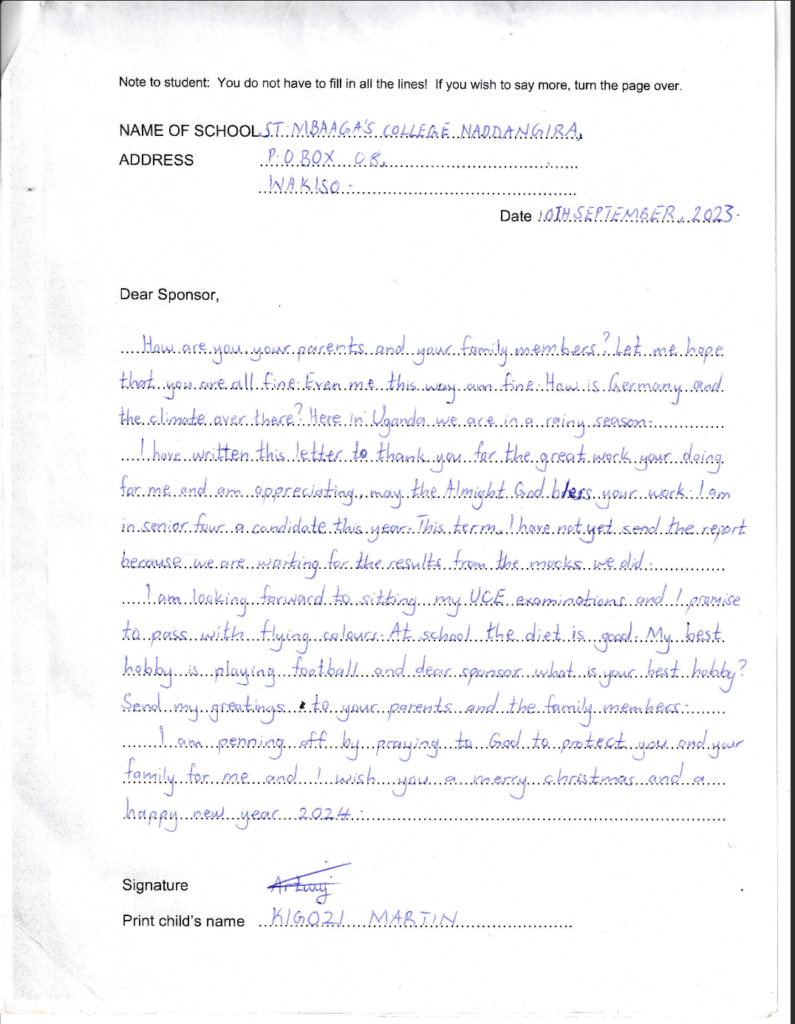 Note to student: You do not have to fill in all the lines! If you wish to say more, turn the page over.
NAME OF SCHOOL ST. MBAAGA'S COLLEGE NADDANGIRA,
ADDRESS P.O BOX 08,
WAKISO.
Date 10TH SEPTEMBER, 2023.
Dear Sponsor,
How are you, your parents and your family members? Let me hope
that you are all fine. Even me this way am fine. How is Germany and
the climate over there? Here in Uganda we are in a rainy season.
I have written this letter to thank you for the great work your doing
for me and am appreciating, may the Almight God bless your work. I am
in senior four a candidate this year. This term, I have not yet send the report
because we are waiting for the results from the mocks we did.
I am looking forward to sitting my UCE examinations and I promise
to pass with flying colours. At school the diet is good. My best
hobby is playing football and dear sponsor what is your best hobby?
Send my greetings to your parents and the family members.
I am penning off by praying to God to protect you and your
family for me and I wish you a merry christmas and a
happy new year 2024.
Signature
Print child's name KIGOZI MARTIN